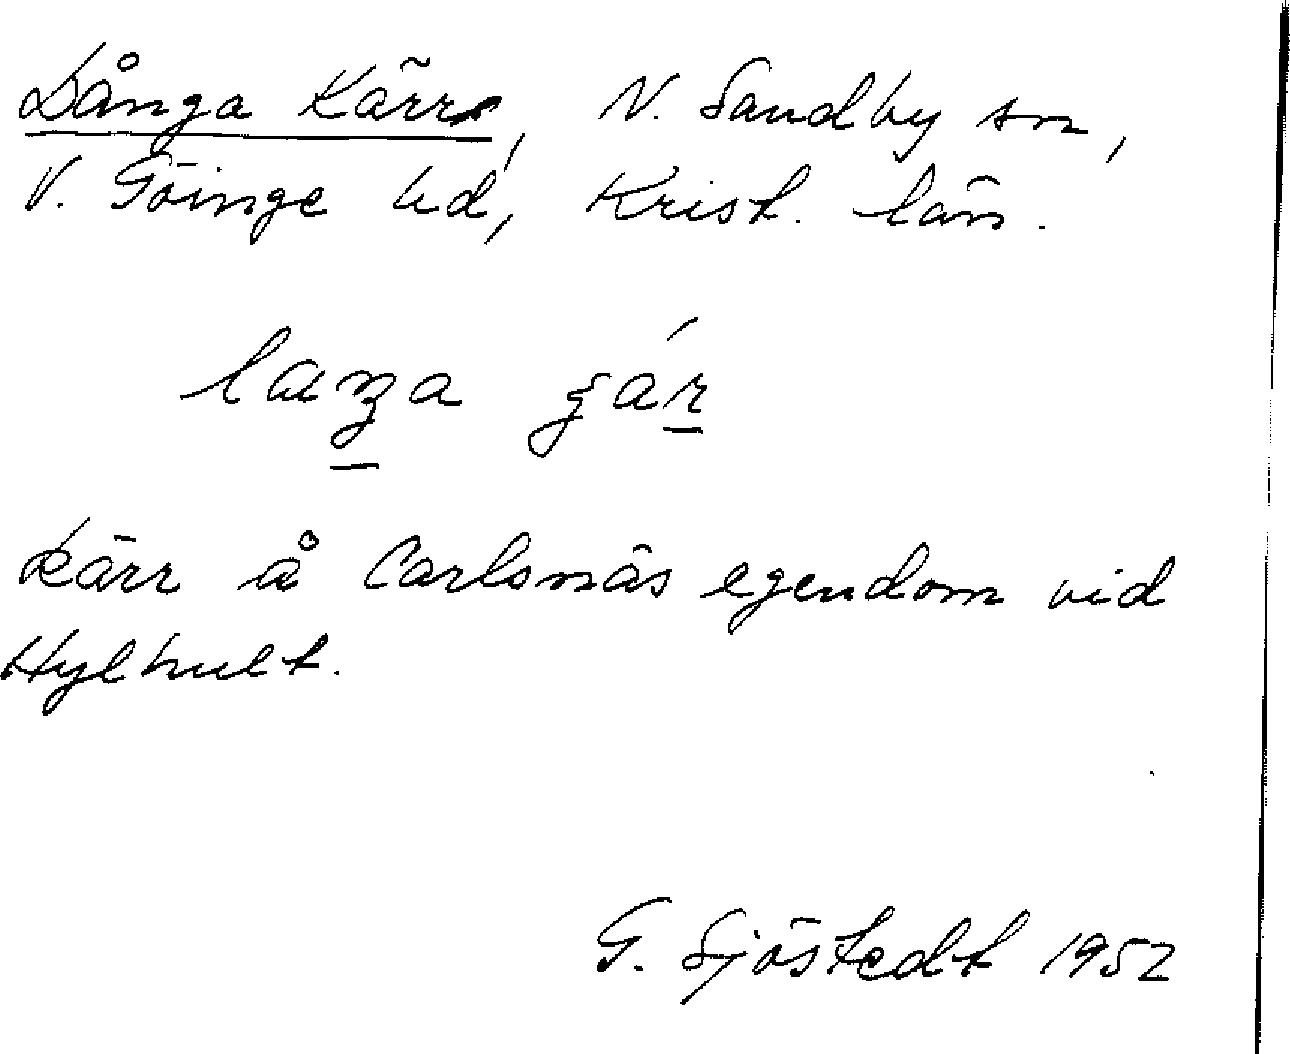 Långa Kärr, N. Sandby sn,
V. Göinge hd, Krist. län.
Kärr å Carlsnäs egendom vid
Hylhult.
G. Sjöstedt 1952